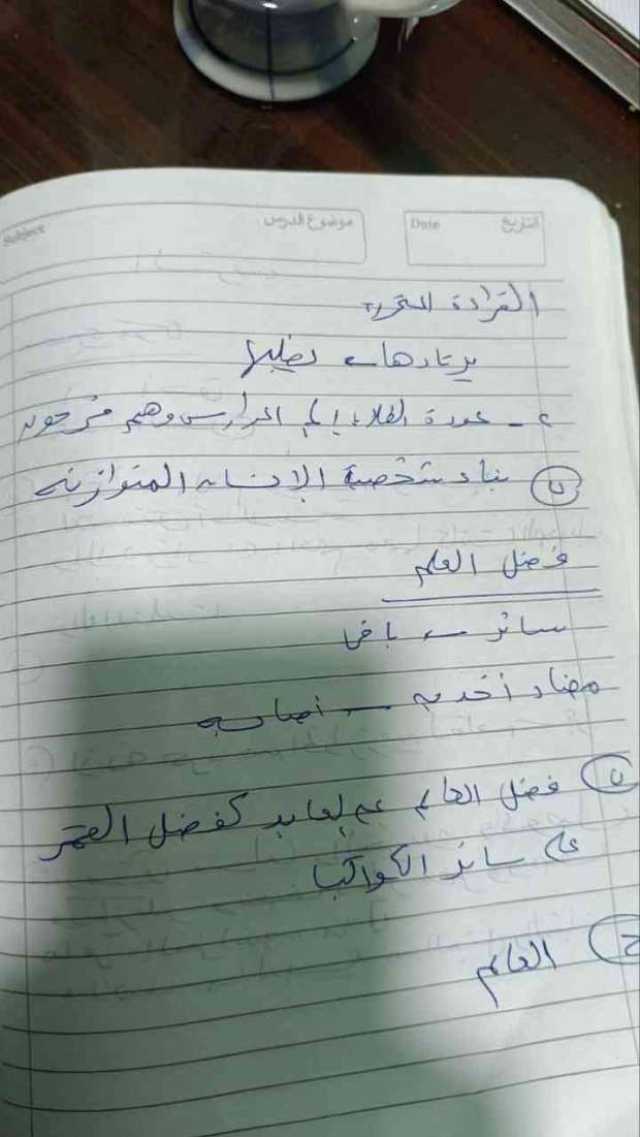 Subject
موضوع الدرس
Date التاريخ
القراءة المتحررة
يرتادها ← يطلبها
٢ - عودة الطلاب إلى المدارس وهم فرحون
ب بناء شخصية الإنسان المتوازنة
فضل العلم
سائر ← باقي
مضاد أخذ به ←
ب فضل العالم على العابد كفضل القمر
على سائر الكواكب
ج العالم